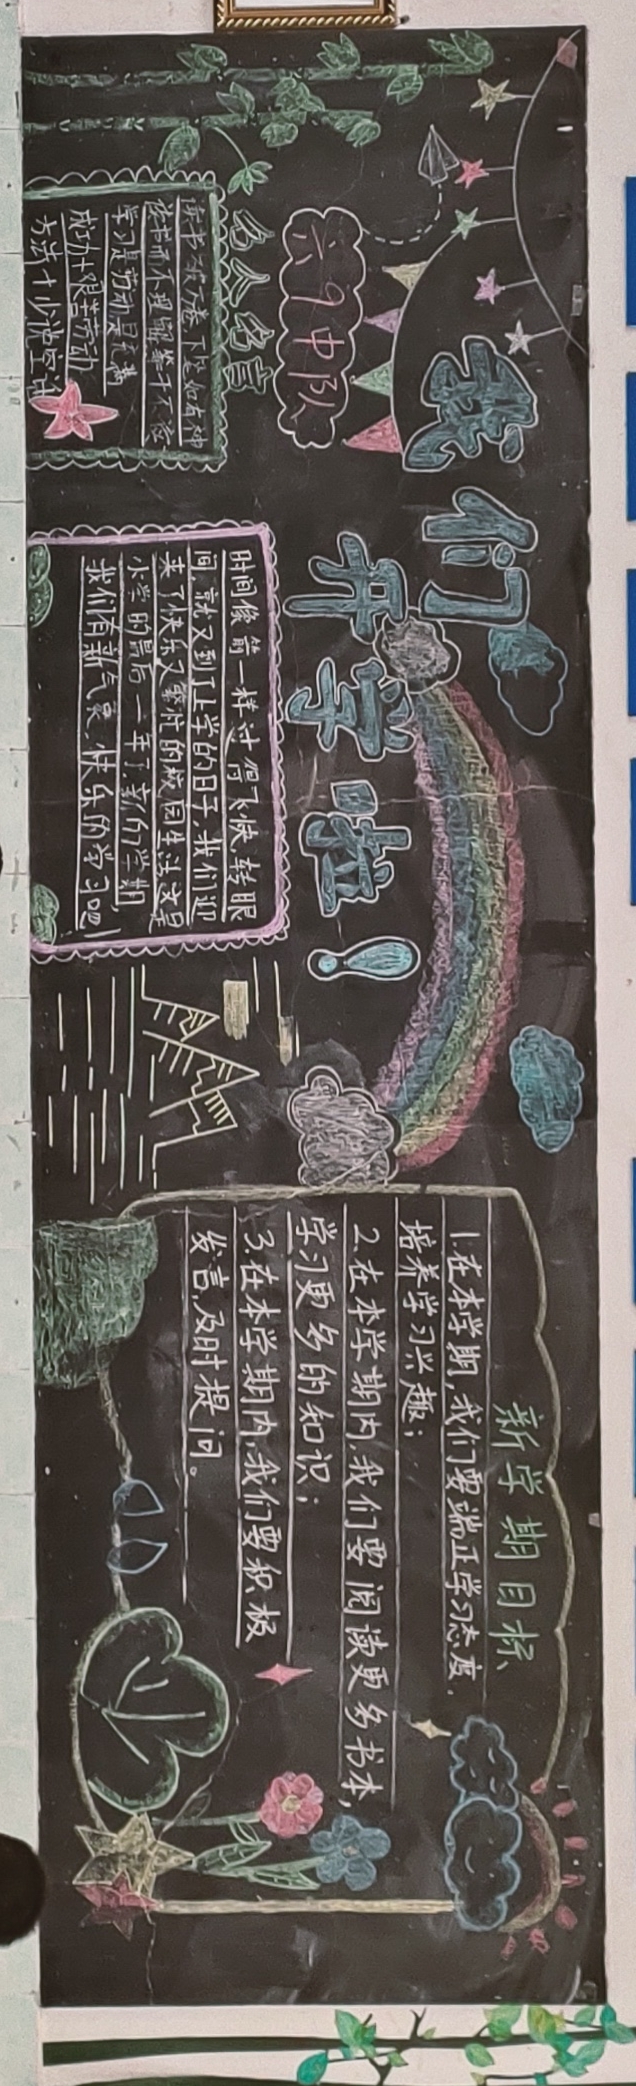 我们
开学啦！
六9中队
名人名言
读书破万卷下笔如有神
读书而不理解等于不读
学习是劳动是充满
成功=艰苦劳动
方法+少说空话
时间像箭一样过得飞快,转眼
间,就又到了上学的日子,我们迎
来了快乐又繁忙的校园生活这是
小学的最后一年了,新的学期
我们有新气象,快乐的学习吧!
新学期目标
1.在本学期,我们要端正学习态度,
培养学习兴趣;
2.在本学期内,我们要阅读更多书本,
学习更多的知识;
3.在本学期内,我们要积极
发言,及时提问。